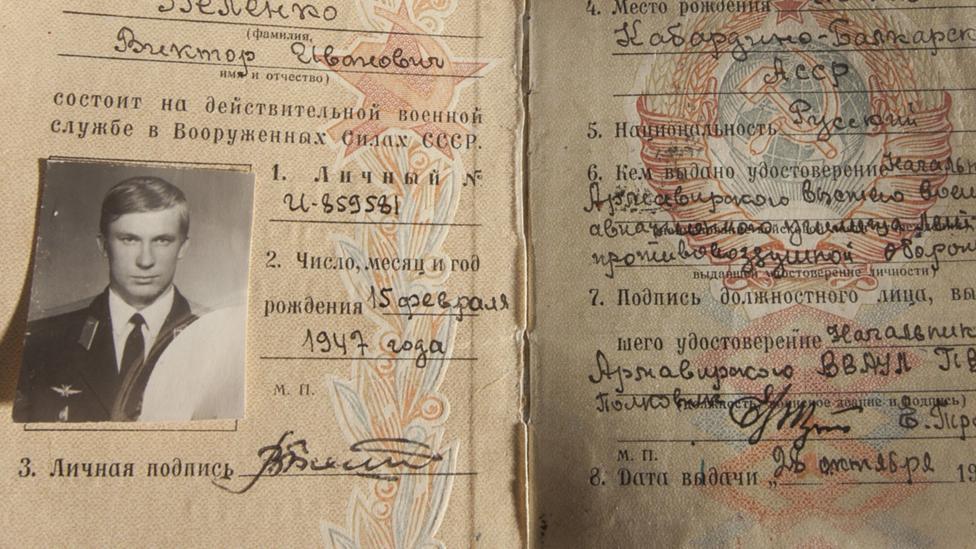 Беленко
(фамилия,
Виктор Иванович
имя и отчество)
состоит на действительной военной
службе в Вооруженных Силах СССР.
1. Личный №
И-859581
2. Число, месяц и год
рождения 15 февраля
1947 года
М. П.
3. Личная подпись
4. Место рождения
Кабардино-Балкарск
АССР
5. Национальность Русский
6. Кем выдано удостоверение Начальн
Армавирского высшего воен
авиационного училища
противовоздушной оборон
выдавшей удостоверение личности
7. Подпись должностного лица, вы
шего удостоверение Начальник
Армавирского ВВАУЛ ПВ
Полковник
воинское звание и подпись)
М. П.
8. Дата выдачи „26 октября 19